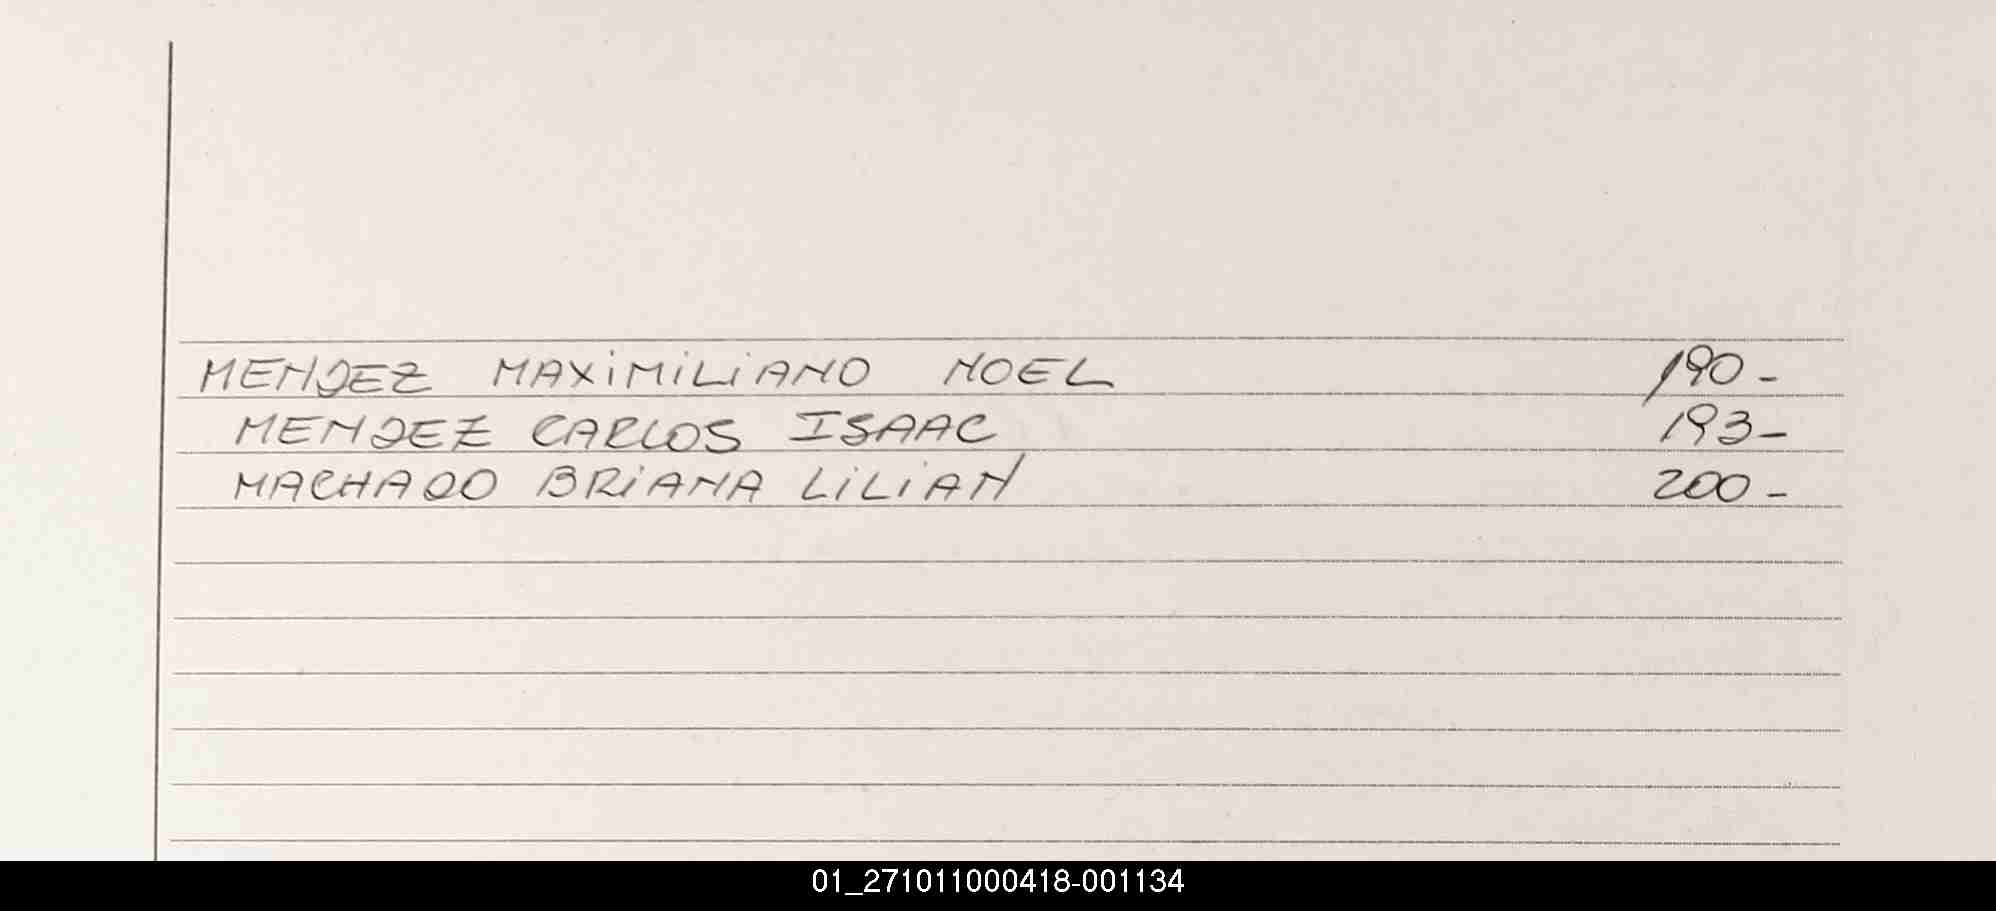 MENDEZ MAXiMiLiANO NOEL 190-
MENDEZ CARLOS ISAAC 193-
MACHADO BRiANA LiLiAN 200-
01_271011000418-001134